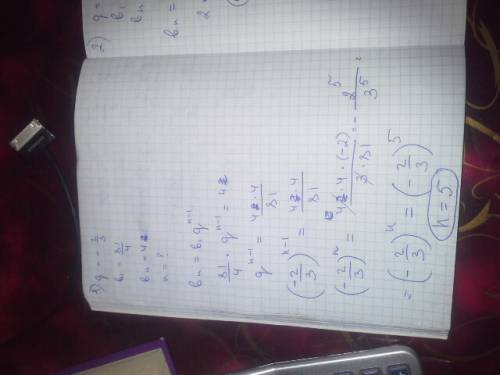 q = -2/3
b₁ = 81/4
bₙ = 4
n = ?
bₙ = b₁ q^(n-1)
81/4 · q^(n-1) = 4
q^(n-1) = 4·4/81
(-2/3)^(n-1) = 4·4/81
(-2/3)^n = 4·4·(-2)/3·81 = - 2^5/3^5 =
= (-2/3)^n = (-2/3)^5
n = 5
2)
q =
b₁
bₙ
bₙ =